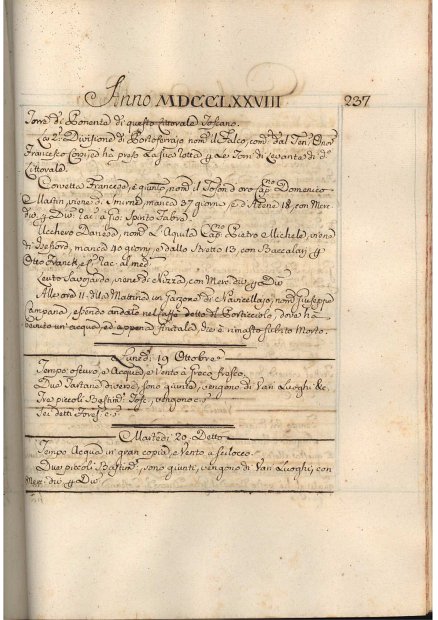 Anno MDCCLXXVIII 237
Torre di Ponente di questo Littorale Toscano.
La 2.ª Divisione di Portoferrajo nom.ª il Falco, com.ta dal Ten.te
Francesco ha preso la sua rotta p le Torri di Levante di d.º
Littorale.
Corvetta Francese, è giunto, nom.ª il Toson d'oro Cap.no Domenico
Martin, viene di Smirne, manca 37 giorni, e d'Atene 18, con Mer-
div.e p Div.i rac.a a Gio: Spirito Fabre.
Ucchero Danese, nom.º L'Aquila Cap.no Pietro Michele, viene
di manca 40 giorni, e dallo Stretto 13, con Baccalaj p
Otto Franck, e rac. al med.mo
Leuto Savojardo, viene di Nizza, con Merc. div.e p Div.i
All'ore 11. della Mattina un Garzone di Navicellajo, nom.º Giuseppe
Campana, essendo andato nel Caffè detto di Porticciolo, dove ha
bevuto un' acqua, ed appena è rimasto subito Morto.
Lunedì 19 Ottobre
Tempo oscuro, e Acqua, e Vento a Greco fresco.
Due Tartane diverse, sono giunte, vengono di Vari Luoghi &c.
Tre piccoli Bastim.ti Tosc.
Sei detti Fores.
Martedì 20. Detto
Tempo Acqua in gran copia, e Vento a Scilocco.
Due piccoli Bastim.ti sono giunti, vengono di Vari Luoghi, con
Mer. div.e p Div.i